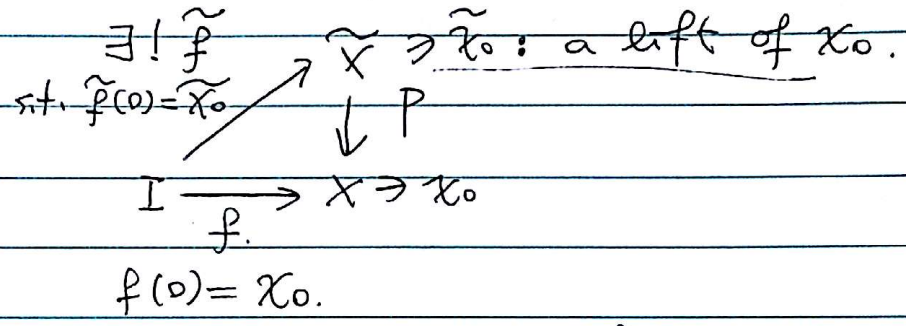 ∃! f̃ X̃ ∋ x̃₀ : a lift of x₀.
s.t. f̃(0) = x̃₀
↗ ↓ P
I → X ∋ x₀
f.
f(0) = x₀.